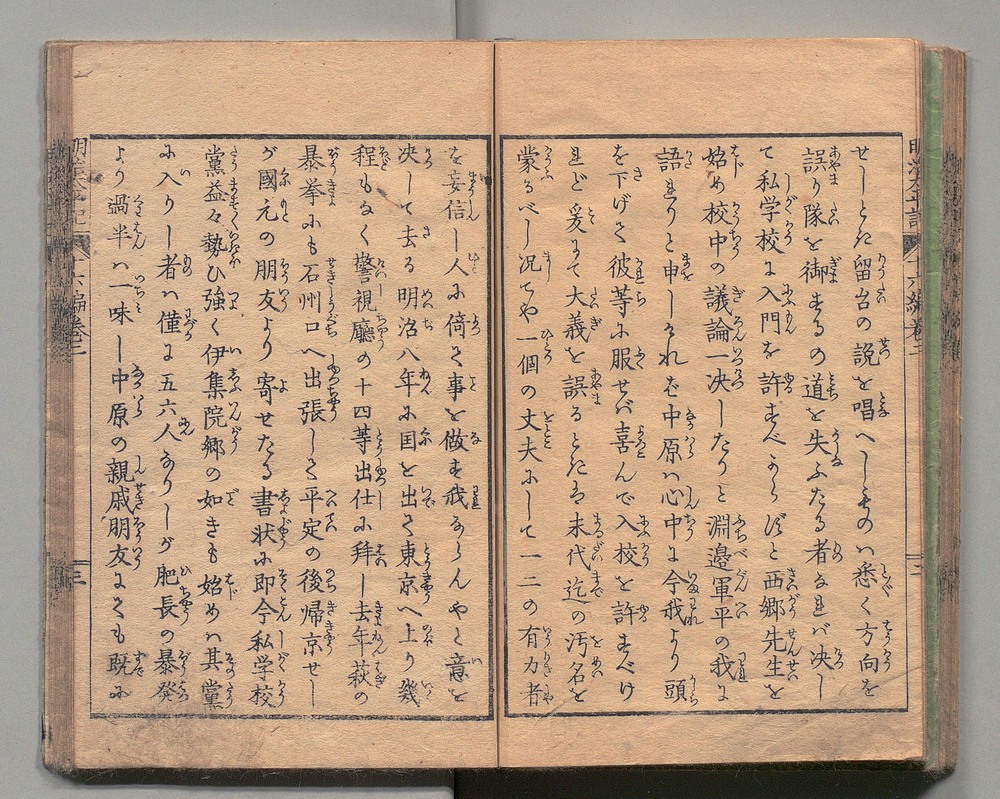 せしとた留台の説を唱へしものハ悉く方向を
誤り隊を御するの道を失ふたる者なれバ决し
て私学校に入門を許すべからずと西郷先生を
始め校中の議論一决したりと淵邉軍平の我に
語れりと申しけれど中原ハ心中に今我より頭
を下げて彼等に服せバ喜んで入校を許すべけ
れど爰にて大義を誤るときハ末代迄の汚名を
蒙るべし况てや一個の丈夫にして一二の有力者
を妄信し人に倚て事を做す我ならんやと意を
决して去る明治八年に国を出て東京へ上り幾
程もなく警視廳の十四等出仕に拜し去年萩の
暴挙にも石州口へ出張して平定の後帰京せし
が國元の朋友より寄せたる書状に即今私学校
黨益々勢ひ強く伊集院郷の如きも始めハ其黨
に入りし者ハ僅に五六人なりしが肥長の暴發
より過半ハ一味し中原の親戚朋友にても既に
十六編巻二
二
十六編巻二
三